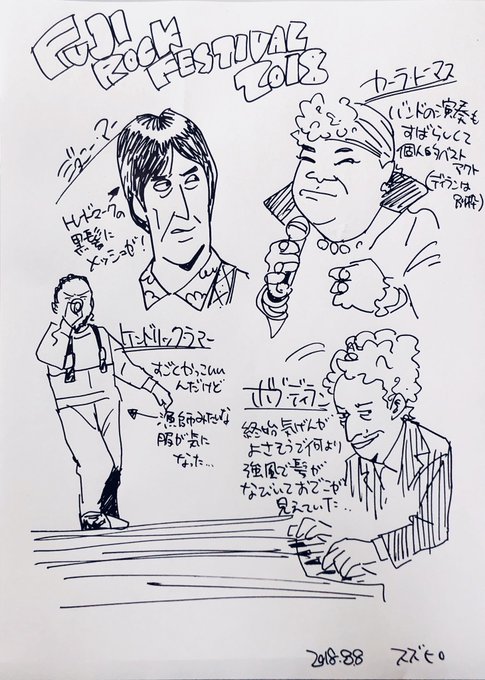 FUJI
ROCK
FESTIVAL
2018
ジョニー・マー
トレードマークの
黒髪に
メッシュが!
カーラ・トーマス
バンドの演奏も
すばらしくて
個人的ベスト
アクト
(ディランは
別格)
ケンドリックラマー
すごくかっこいい
んだけど
漁師みたいな
服が気に
なった…
ボブ・ディラン
終始気げんが
よさそうで何より
強風で髪が
なびいておでこが
見えていた..
2018.8.8 スズヒロ